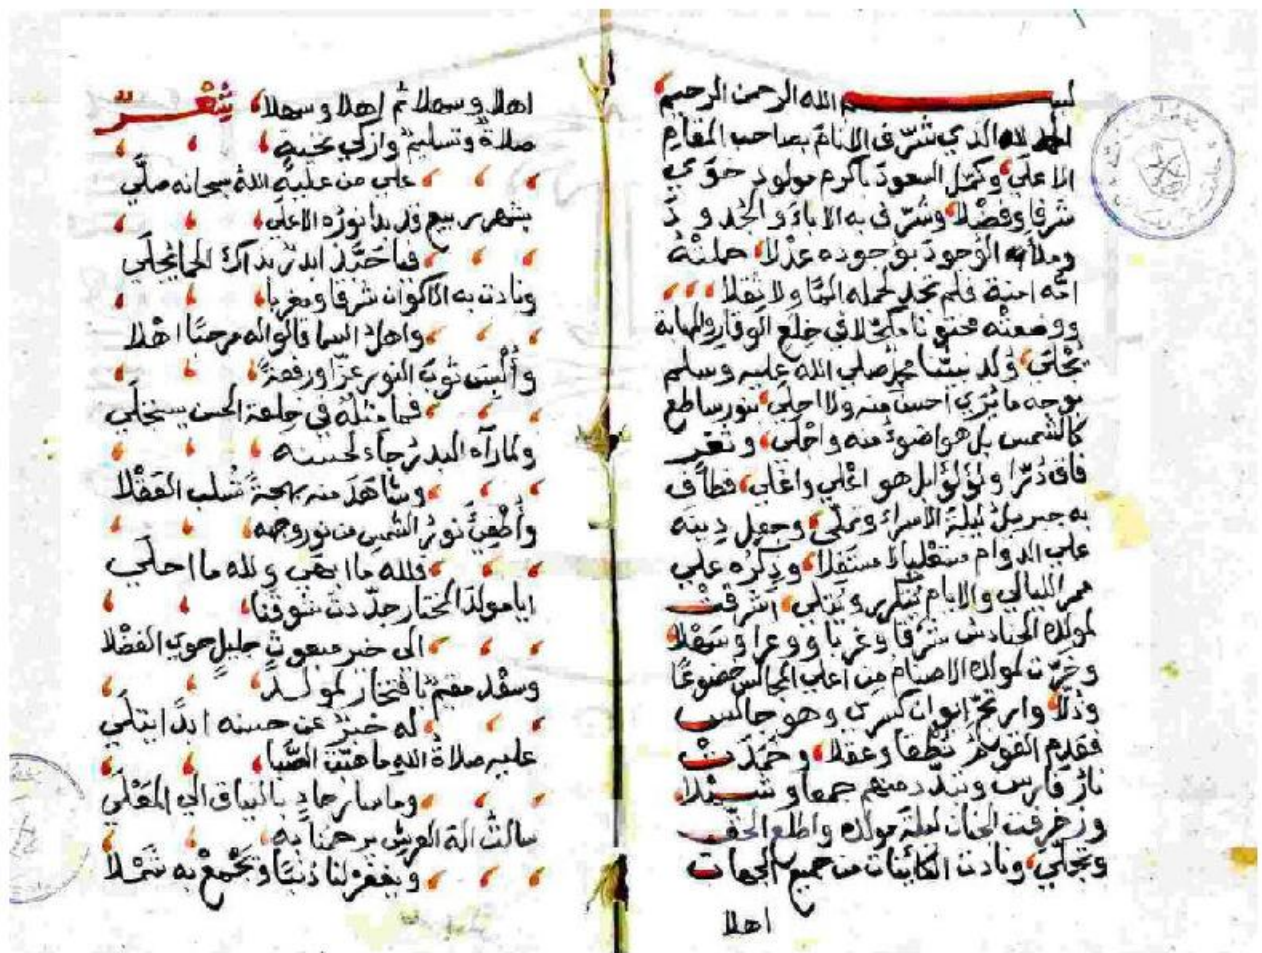 بسم الله الرحمن الرحيم
الحمد لله الذي شرّف الانام بصاحب المقام
الاعلي وكمل السعود باكرم مولود حوي
شرفا وفضلا وشرّف به الاباء والجدود
وملأ الوجود بوجوده عدلا حملته
امّه امنة فلم تجد لحمله المّا ولا ثقلا
ووضعته مختونا مكحلا في خلع الوقار والمهابة
تجلّي ولد نبيّنا محمد صلي الله عليه وسلم
بوجه ما يُري احسن منه ولا احلي بنور ساطع
كالشمس بل هو اضوء منه واجلي وثغر
فاق درّا ولؤلؤا بل هو اغلي واعلي فطاف
به جبريل ليلة الاسراء وجعل دينه
علي الدوام مستقلا وذكره علي
ممر الليالي والايام يكرر ويتلي اشرقت
لمولده الحنادس شرقا وغربا ووعرا وسهلا
وخرّت لمولده الاصنام من اعلي المجالس خضوعًا
وذلّا وارتجّ ايوان كسري وهو جالس
فعدم القوم نطقا وعقلا وخمدت
نار فارس وتبدّد منهم جمعا وشملا
وزخرفت الجنان ليلة مولده واطلع الحق
وتجلّي ونادت الكائنات من جميع الجهات
اهلا
اهلا وسهلا ثم اهلا وسهلا شعر
صلاة وتسليم وازكي تحية
علي من عليه الله سبحانه صلّي
بشهر ربيع قد بدا نوره الاعلي
فيا حبّذا بدر بذاك الحما يجلّي
ونادت به الاكوان شرقا ومغربا
واهل السما قالوا له مرحبًا اهلا
وأُلبس ثوب النور عزّا ورفعةً
فما مثله في خلعة الحسن يستجلي
ولما رآه البدر حار لحسنه
وشاهد منه بهجةً تسلب العقلا
وأُطفئ نور الشمس من نور وجهه
فلله ما ابهي ولله ما احلي
ايا مولد المختار جدّدت شوقنا
الي خير مبعوث جليل حوي الفضلا
وسعد مقيم بافتخار لمولد
له خبر عن حسنه ابدًا يتلي
عليه صلاة الله ما هبّت الصّبا
وما سار حادٍ بالنياق الي المعلّي
سالت اله العرش يرحمنا به
ويغفر لنا ذنبًا ويجمع به شملا